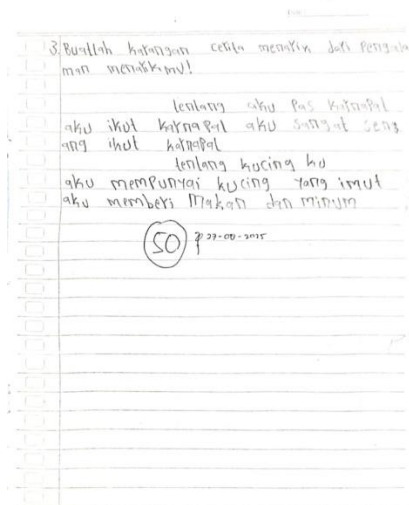 No:
3. Buatlah karangan cerita menarik dari Pengala
man menarikmu!
tentang aku Pas Karnapal
aku ikut Karnapal aku sangat seng
ang ikut karnapal
tentang kucing ku
aku memPunyai kucing yang imut
aku memberi Makan dan minum
50